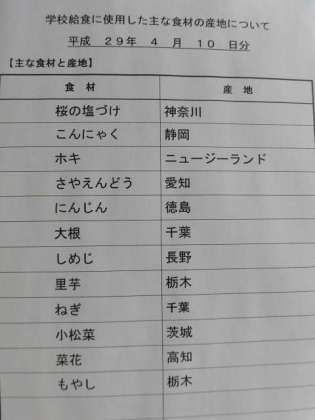 学校給食に使用した主な食材の産地について
平成 29年 4 月 10 日分
【主な食材と産地】
食 材 産 地
桜の塩づけ 神奈川
こんにゃく 静岡
ホキ ニュージーランド
さやえんどう 愛知
にんじん 徳島
大根 千葉
しめじ 長野
里芋 栃木
ねぎ 千葉
小松菜 茨城
菜花 高知
もやし 栃木